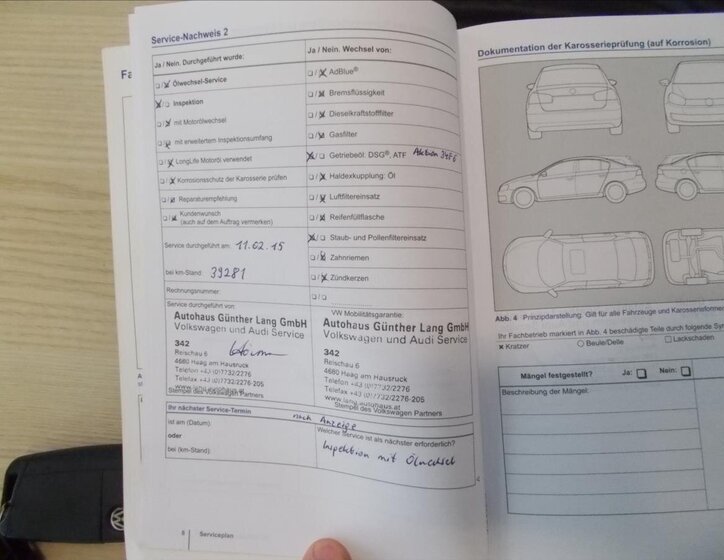 Service-Nachweis 2
Ja / Nein. Durchgeführt wurde:
Ölwechsel-Service
Inspektion
mit Motorölwechsel
mit erweitertem Inspektionsumfang
LongLife Motoröl verwendet
Korrosionsschutz der Karosserie prüfen
Reparaturempfehlung
Kundenwunsch
(auch auf dem Auftrag vermerken)
Service durchgeführt am: 11.02.15
bei km-Stand: 39281
Rechnungsnummer:
Service durchgeführt von:
Autohaus Günther Lang GmbH
Volkswagen und Audi Service
342
Reischau 6
4680 Haag am Hausruck
Telefon +43 (0)7732/2276
Telefax +43 (0)7732/2276-205
www.lang.autohaus.at
Stempel des Volkswagen Partners
Ja / Nein. Wechsel von:
AdBlue®
Bremsflüssigkeit
Dieselkraftstofffilter
Gasfilter
Getriebeöl: DSG®, ATF Aktion 34F6
Haldexkupplung: Öl
Luftfiltereinsatz
Reifenfüllflasche
Staub- und Pollenfiltereinsatz
Zahnriemen
Zündkerzen
VW Mobilitätsgarantie:
Autohaus Günther Lang GmbH
Volkswagen und Audi Service
342
Reischau 6
4680 Haag am Hausruck
Telefon +43 (0)7732/2276
Telefax +43 (0)7732/2276-205
www.lang.autohaus.at
Stempel des Volkswagen Partners
Ihr nächster Service-Termin
ist am (Datum): nach Anzeige
oder
bei (km-Stand):
Welcher Service ist als nächster erforderlich?
Inspektion mit Ölwechsel
8 Serviceplan
Dokumentation der Karosserieprüfung (auf Korrosion)
Abb. 4 Prinzipdarstellung: Gilt für alle Fahrzeuge und Karosserieforme
Ihr Fachbetrieb markiert in Abb. 4 beschädigte Teile durch folgende Sy
Kratzer Beule/Delle Lackschäden
Mängel festgestellt? Ja: Nein:
Beschreibung der Mängel: